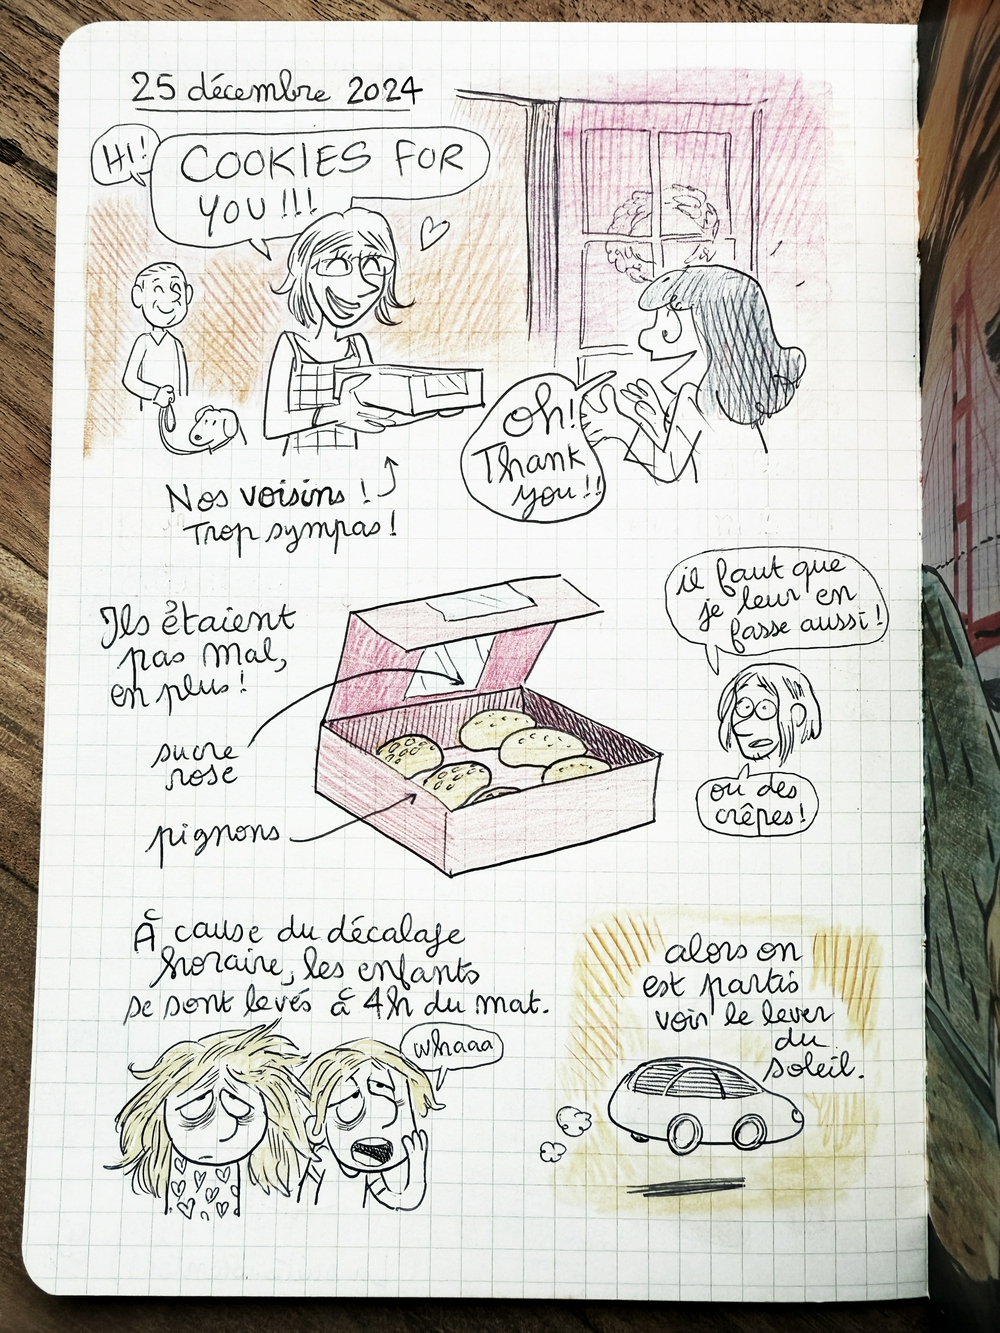 25 décembre 2024
HI!
COOKIES FOR
YOU!!!
oh!
Thank
you!!
Nos voisins !
Trop sympas !
il faut que
je leur en
fasse aussi !
Ils étaient
pas mal,
en plus !
sucre
rose
pignons
ou des
crêpes !
À cause du décalage
horaire, les enfants
se sont levés à 4h du mat.
whaaa
alors on
est partis
voir le lever
du
soleil.